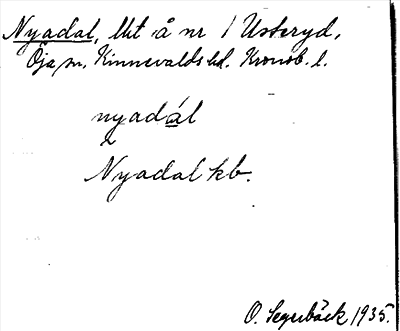 Nyadal, lht å nr 1 Usteryd,
Öja sn, Kinnevalds hd. Kronob. l.
nyadál
Nyadal kb.
O. Segerbäck 1935.